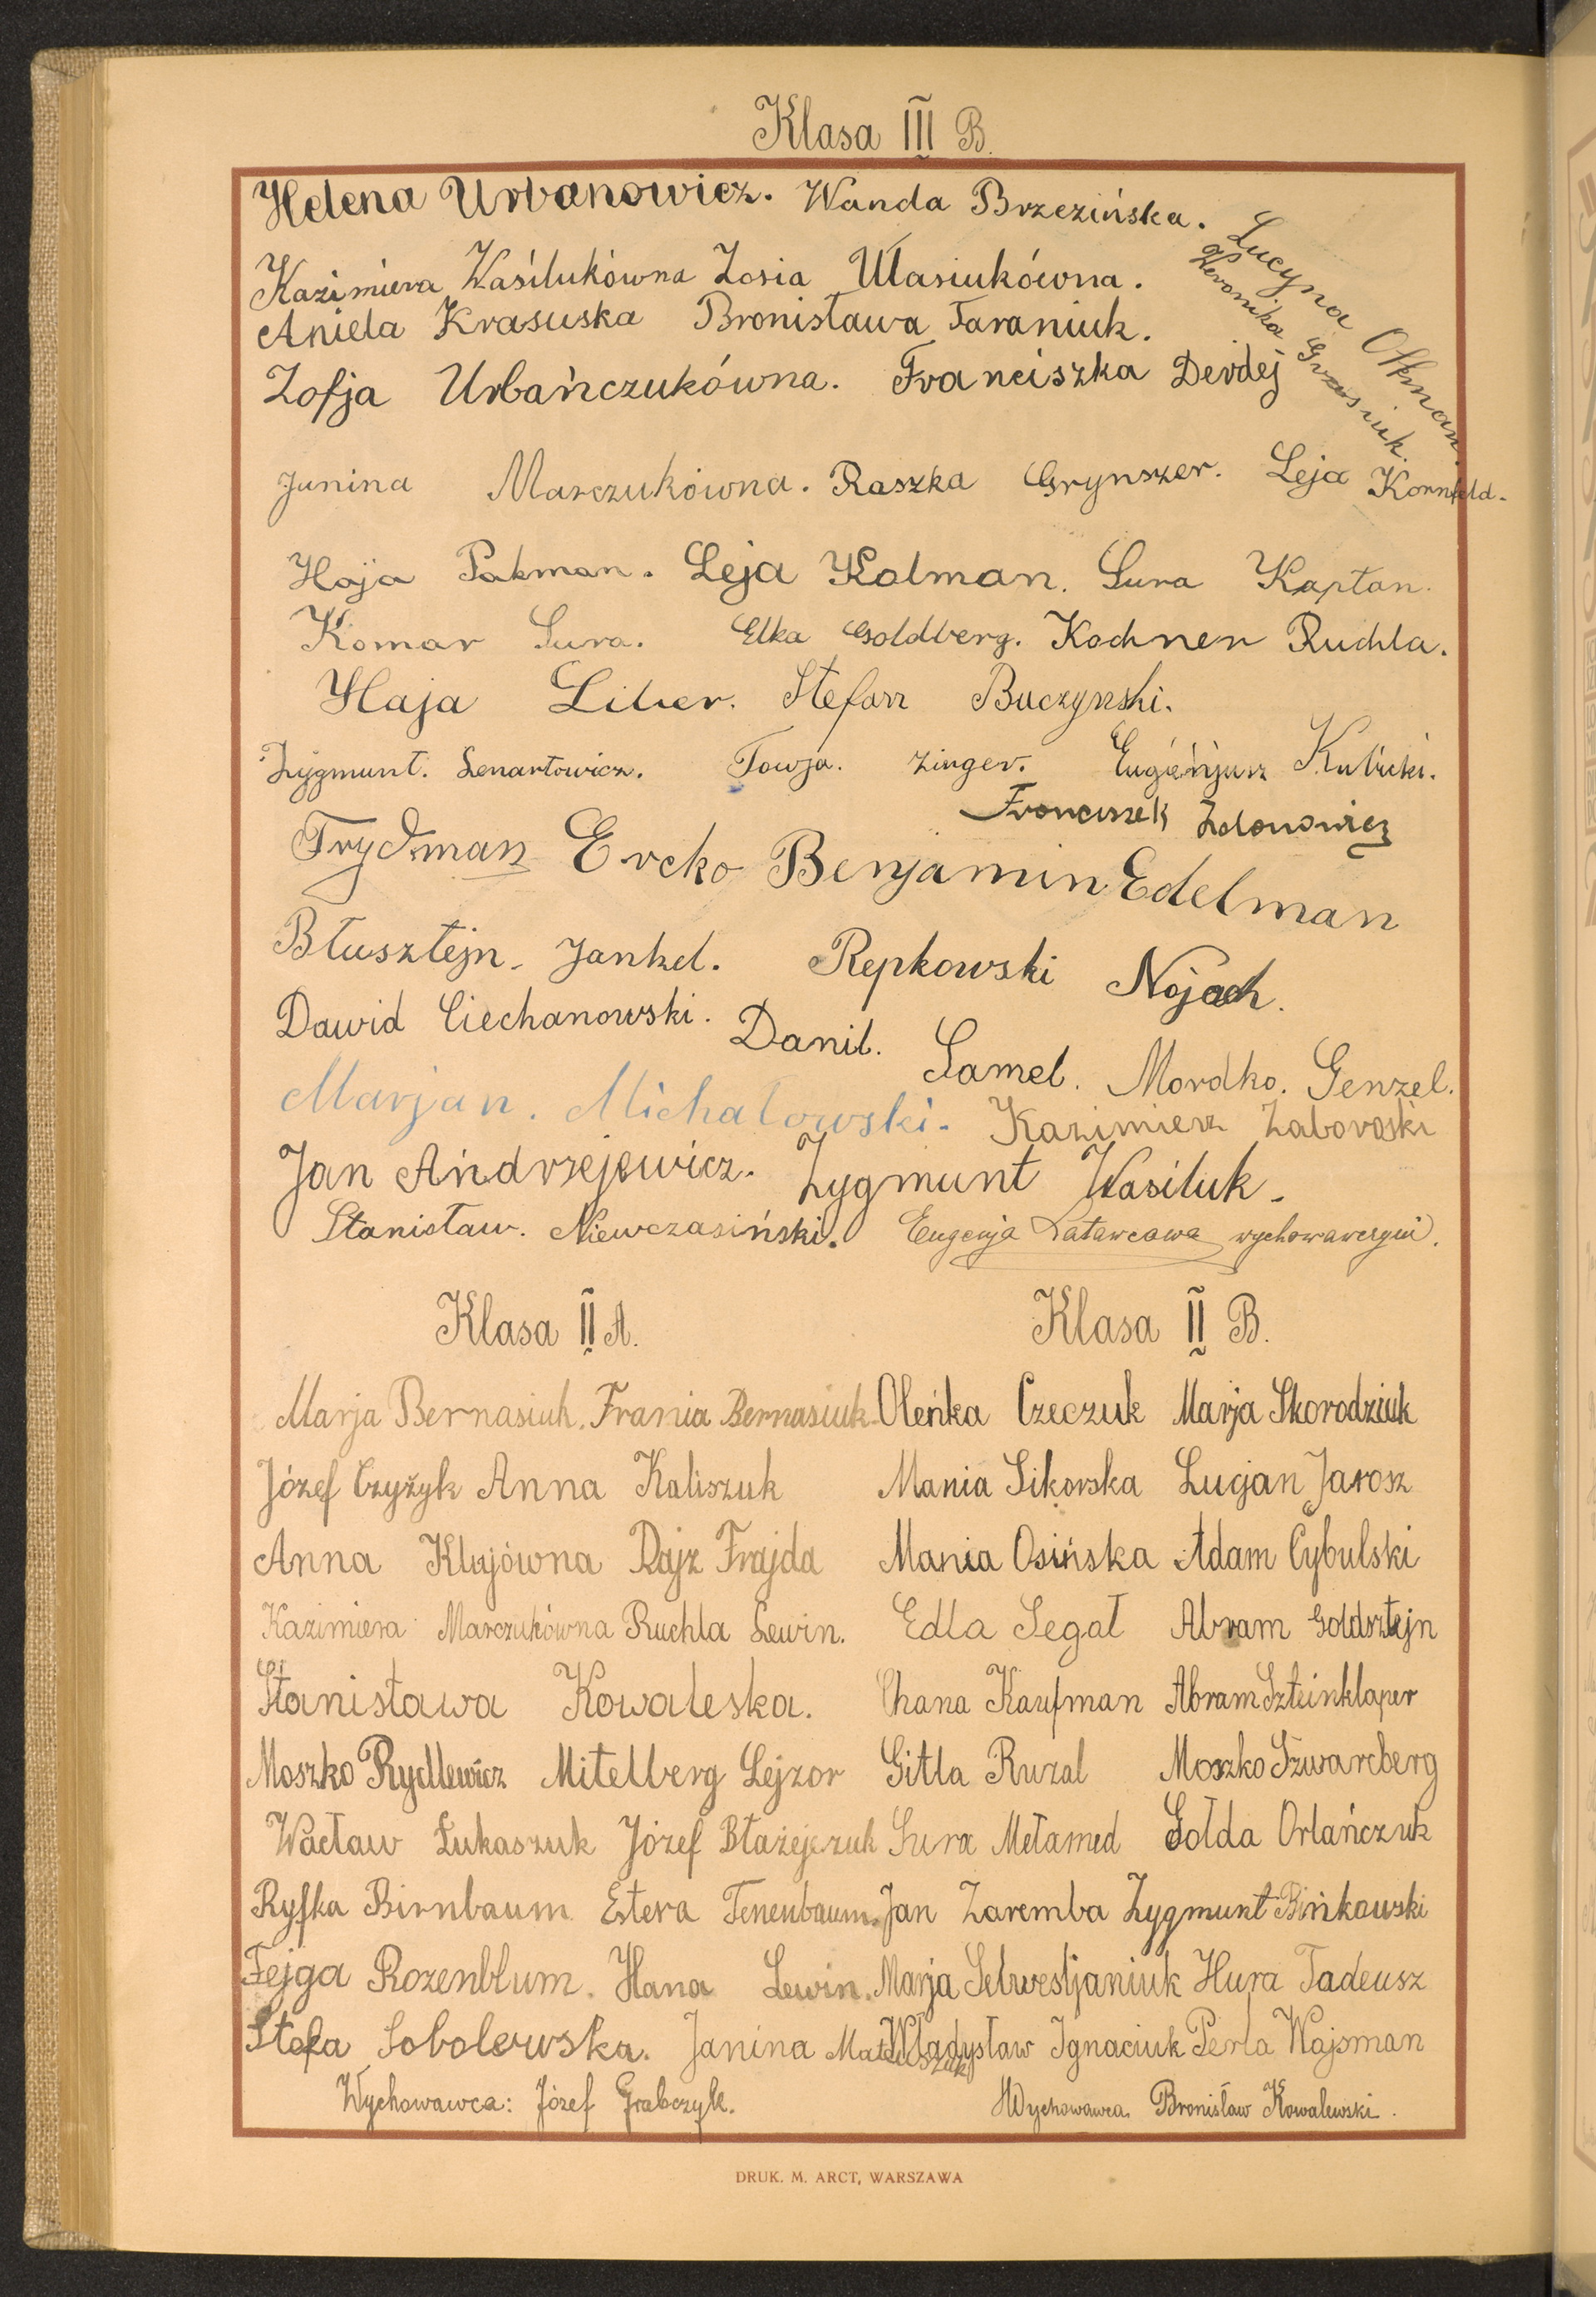 Klasa III B.
Helena Urbanowicz. Wanda Brzezińska.
Lucyna Offman.
Weronika Grzesiuk.
Kazimiera Wasilukówna Zosia Własiukówna.
Aniela Krasuska Bronisława Taraniuk.
Zofja Urbańczukówna. Franciszka Derdej
Janina Marczukówna. Raszka Grynszer. Leja Kornfeld.
Haja Pakman. Leja Kolman. Sura Kapłan.
Komar Sura. Elka Goldberg. Kochner Ruchla.
Haja Liber. Stefan Buczyński.
Zygmunt. Lenartowicz. Towja. Zinger. Eugenjusz Kubicki.
Franciszek Zdonowicz
Frydman Ercko Benjamin Edelman
Błusztejn Jankel. Repkowski Nojach.
Dawid Ciechanowski. Danil. Samel. Mordko. Genzel.
Marjan. Michałowski. Kazimierz Zaborowski
Jan Andrzejewicz. Zygmunt Wasiluk.
Stanisław. Niewczasiński. Eugenja Latawcowa wychowawczyni.
Klasa II A. Klasa II B.
Marja Bernasiuk. Frania Bernasiuk Oleńka Czeczuk Marja Skorodziuk
Józef Czyżyk Anna Kaliszuk Mania Sikorska Lucjan Jarosz
Anna Klujówna Rajz Frajda Mania Osińska Adam Cybulski
Kazimiera Marczukówna Ruchla Lewin. Edla Segał Abram Goldsztejn
Stanisława Kowaleska. Chana Kaufman Abram Szteinklaper
Moszko Rydlewicz Mitelberg Lejzor Gitla Ruzal Moszko Szwarcberg
Wacław Łukaszuk Józef Błażejczuk Sura Mełamed Gołda Orlańczuk
Ryfka Birnbaum Estera Tenenbaum. Jan Zaremba Zygmunt Bińkowski
Fejga Rozenblum. Hana Lewin. Marja Selwestjaniuk Hura Tadeusz
Stefa Sobolewska. Janina Mateuszuk Władysław Ignaciuk Perla Wajsman
Wychowawca: Józef Grabczyk. Wychowawca Bronisław Kowalewski.
DRUK. M. ARCT, WARSZAWA